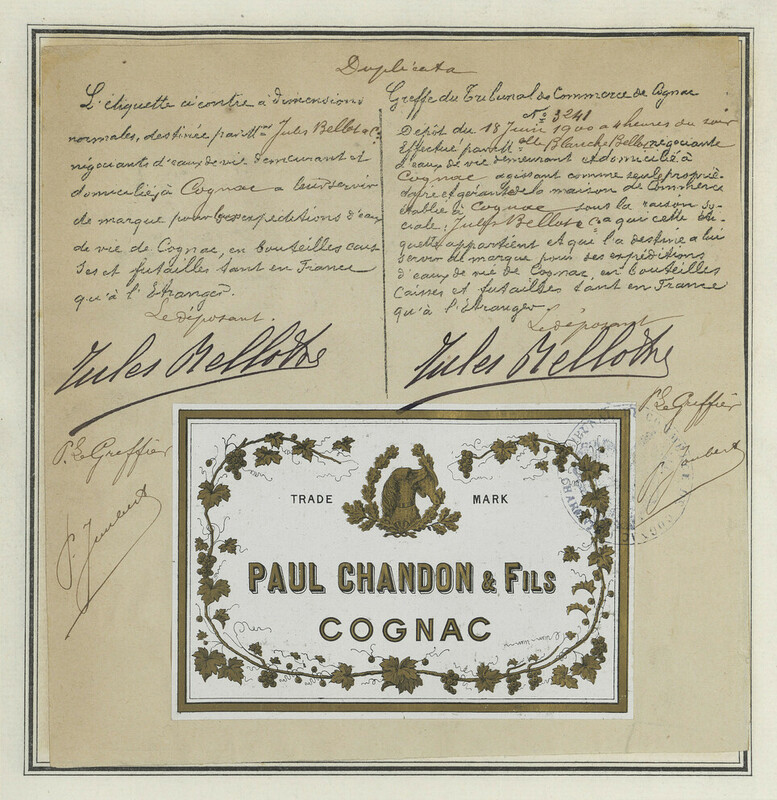 Duplicata
L'étiquette ci contre à dimensions
normales, destinée par Mme Jules Bellot & Co
négociants d'eaux de vie demeurant et
domiciliés à Cognac a leur servir
de marque pour les expéditions d'eaux
de vie de Cognac, en bouteilles cais-
ses et futailles tant en France
qu'à l'Etranger.
Le déposant.
Jules Bellot & Co
P. Le Greffier
P. Jaubert
Greffe du Tribunal de Commerce de Cognac
No 3241
Dépôt du 18 Juin 1900 à 4 heures du soir
Effectué par Mlle Blanche Bellot négociante
d'eaux de vie demeurant et domicilié à
Cognac agissant comme seule propri-
étaire et gérante de la maison de Commerce
établie à Cognac sous la raison so-
ciale: Jules Bellot & Co a qui cette éti-
quette appartient et qui l'a destiné a lui
servir de marque pour des expéditions
d'eaux de vie de Cognac, en bouteilles
Caisses et futailles tant en France
qu'à l'étranger
Le déposant
Jules Bellot & Co
P. Le Greffier
P. Jaubert
TRADE MARK
PAUL CHANDON & FILS
COGNAC